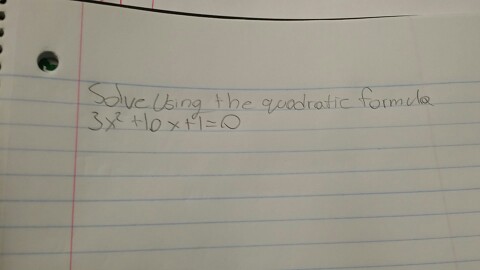 Solve Using the quadratic formula
3x² +10x+1=0